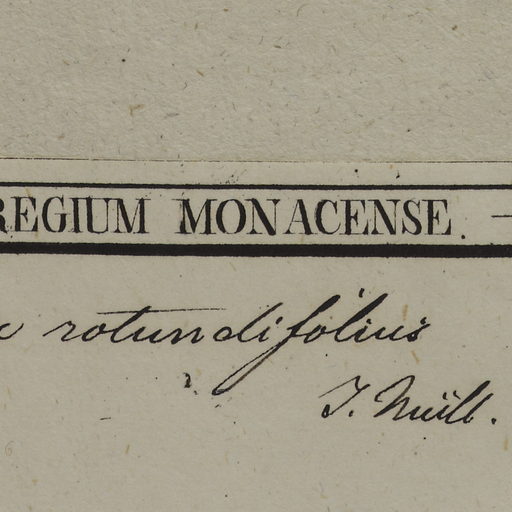 REGIUM MONACENSE. —
rotundifolius
J. Müll.